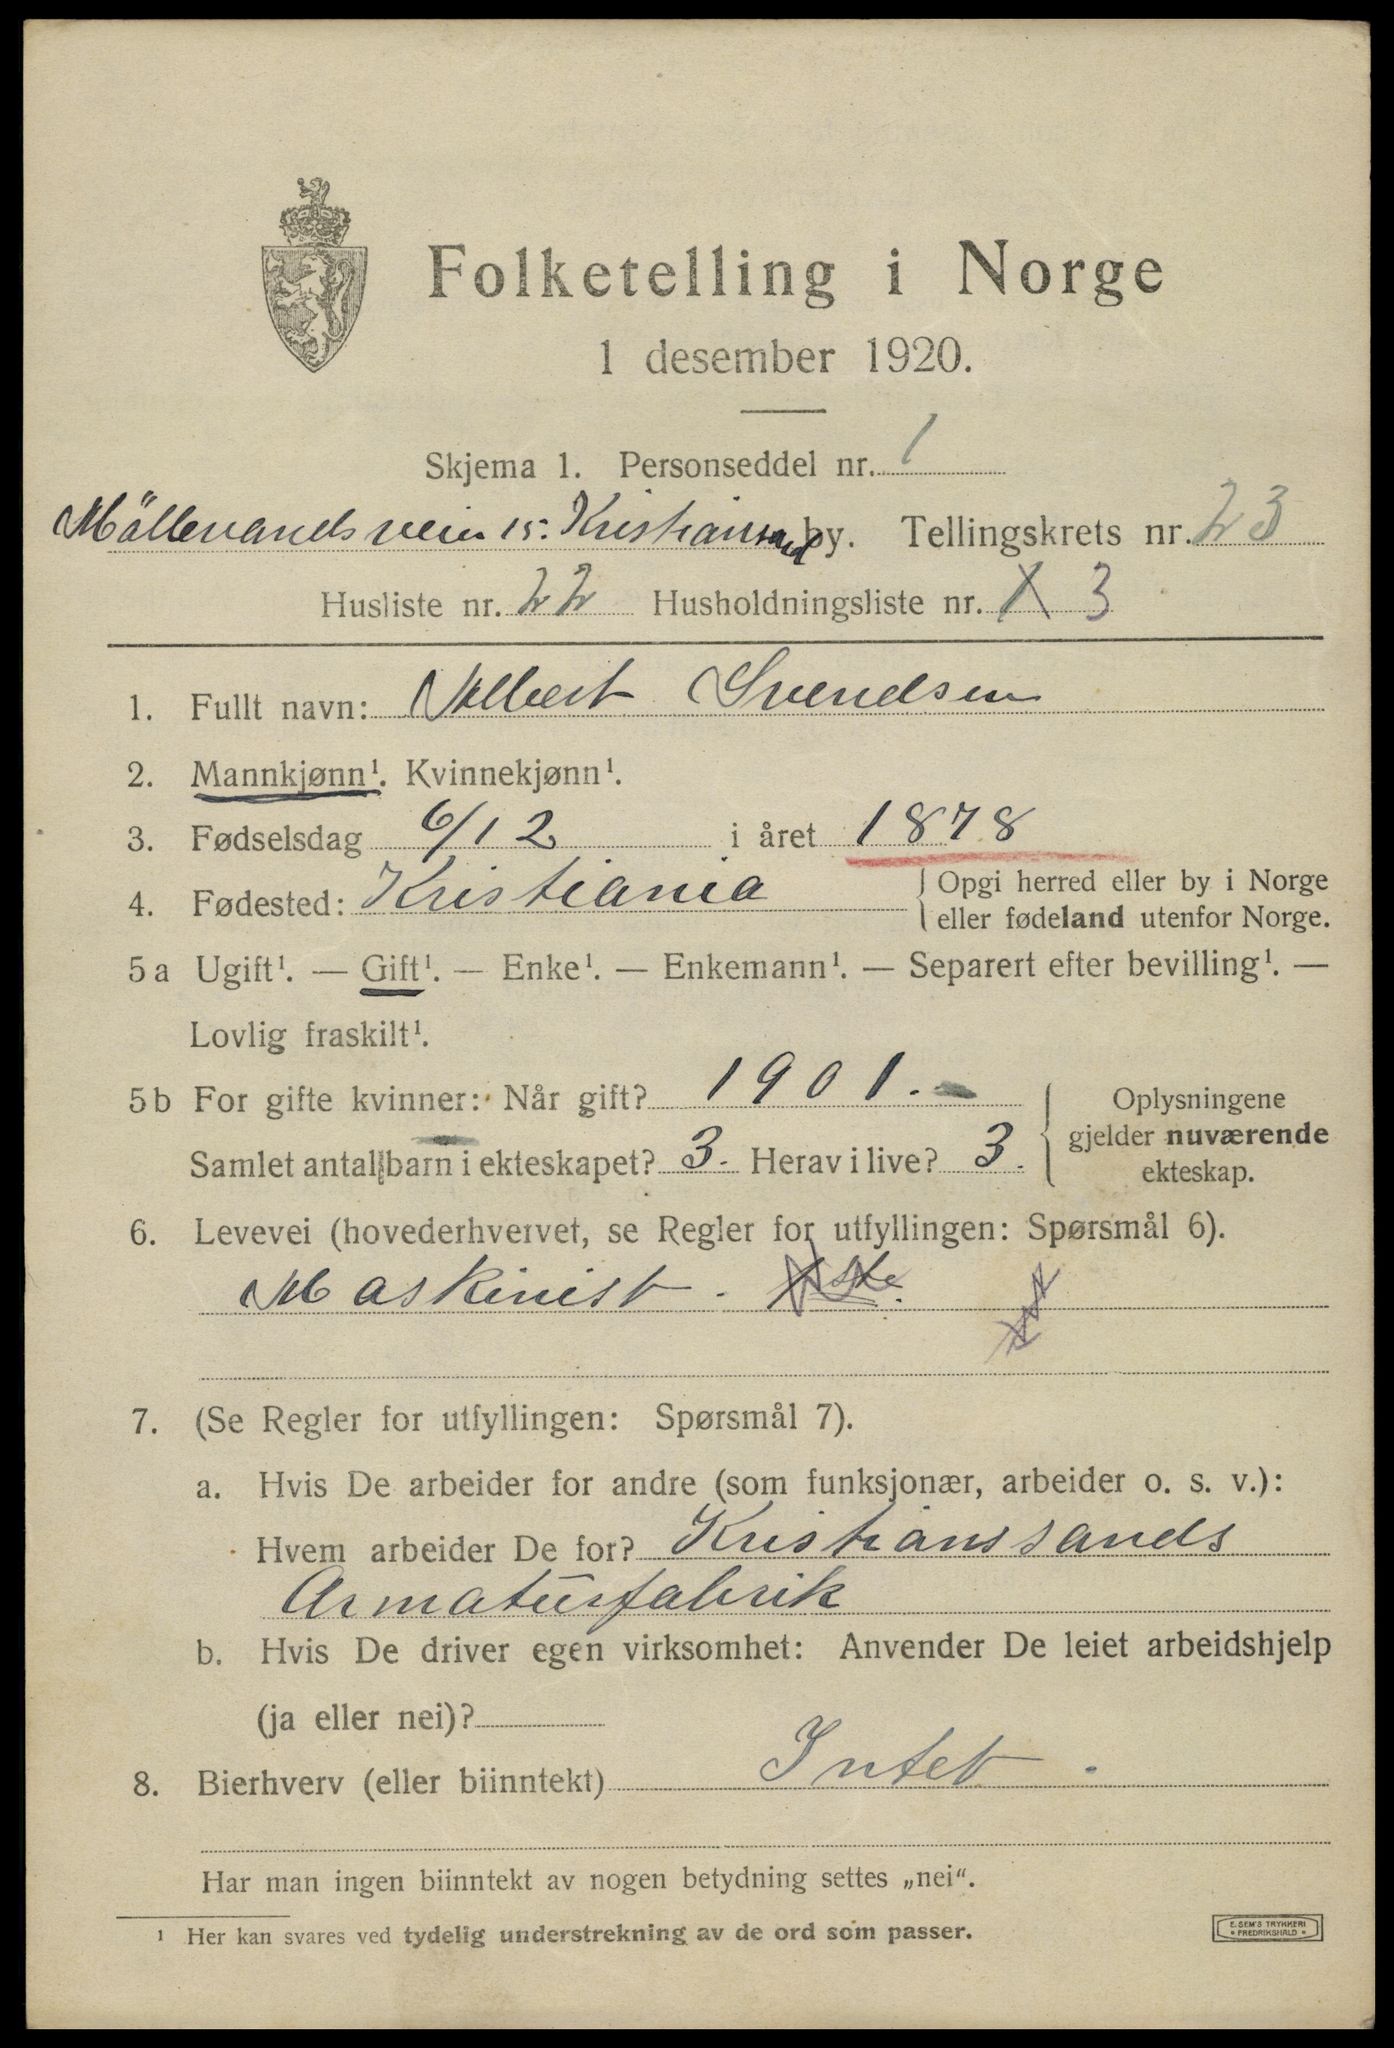 Folketelling i Norge
1 desember 1920.
Skjema 1. Personseddel nr. 1
Möllevandsvein 15. Kristiansand by. Tellingskrets nr. 23
Husliste nr. 22 Husholdningsliste nr. 1 3
1. Fullt navn: Albert Svendsen
2. Mannkjønn¹. Kvinnekjønn¹.
3. Fødselsdag 6/12 i året 1878
4. Fødested: Kristiania { Opgi herred eller by i Norge
eller fødeland utenfor Norge.
5 a Ugift¹. — Gift¹. — Enke¹. — Enkemann¹. — Separert efter bevilling¹. —
Lovlig fraskilt¹.
5 b For gifte kvinner: Når gift? 1901. Oplysningene
gjelder nuværende
ekteskap.
Samlet antall barn i ekteskapet? 3. Herav i live? 3.
6. Levevei (hovederhvervet, se Regler for utfyllingen: Spørsmål 6).
Maskinist.
7. (Se Regler for utfyllingen: Spørsmål 7).
a. Hvis De arbeider for andre (som funksjonær, arbeider o. s. v.):
Hvem arbeider De for? Kristianssands
Armaturfabrik
b. Hvis De driver egen virksomhet: Anvender De leiet arbeidshjelp
(ja eller nei)?
8. Bierhverv (eller biinntekt) Intet.
Har man ingen biinntekt av nogen betydning settes „nei".
¹ Her kan svares ved tydelig understrekning av de ord som passer.
E. SEM'S TRYKKERI
* FREDRIKSHALD *